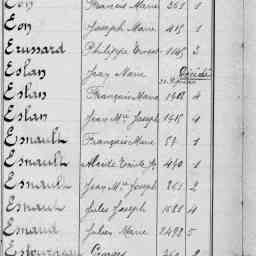 Eon François Marie 361 1
Eon Joseph Marie 415 1
Erussard Philippe Ernest 1145 3
Eslan Jean Marie Décédé
Eslan François Marie 1908 4
Eslan Jean Mie Joseph 1915 4
Esnault François Marie 59 1
Esnault 490 1
Esnault Jean Mie Joseph 865 2
Esnault Jules Joseph 1581 4
Esnaud Julien Marie 2498 5
Georges 2